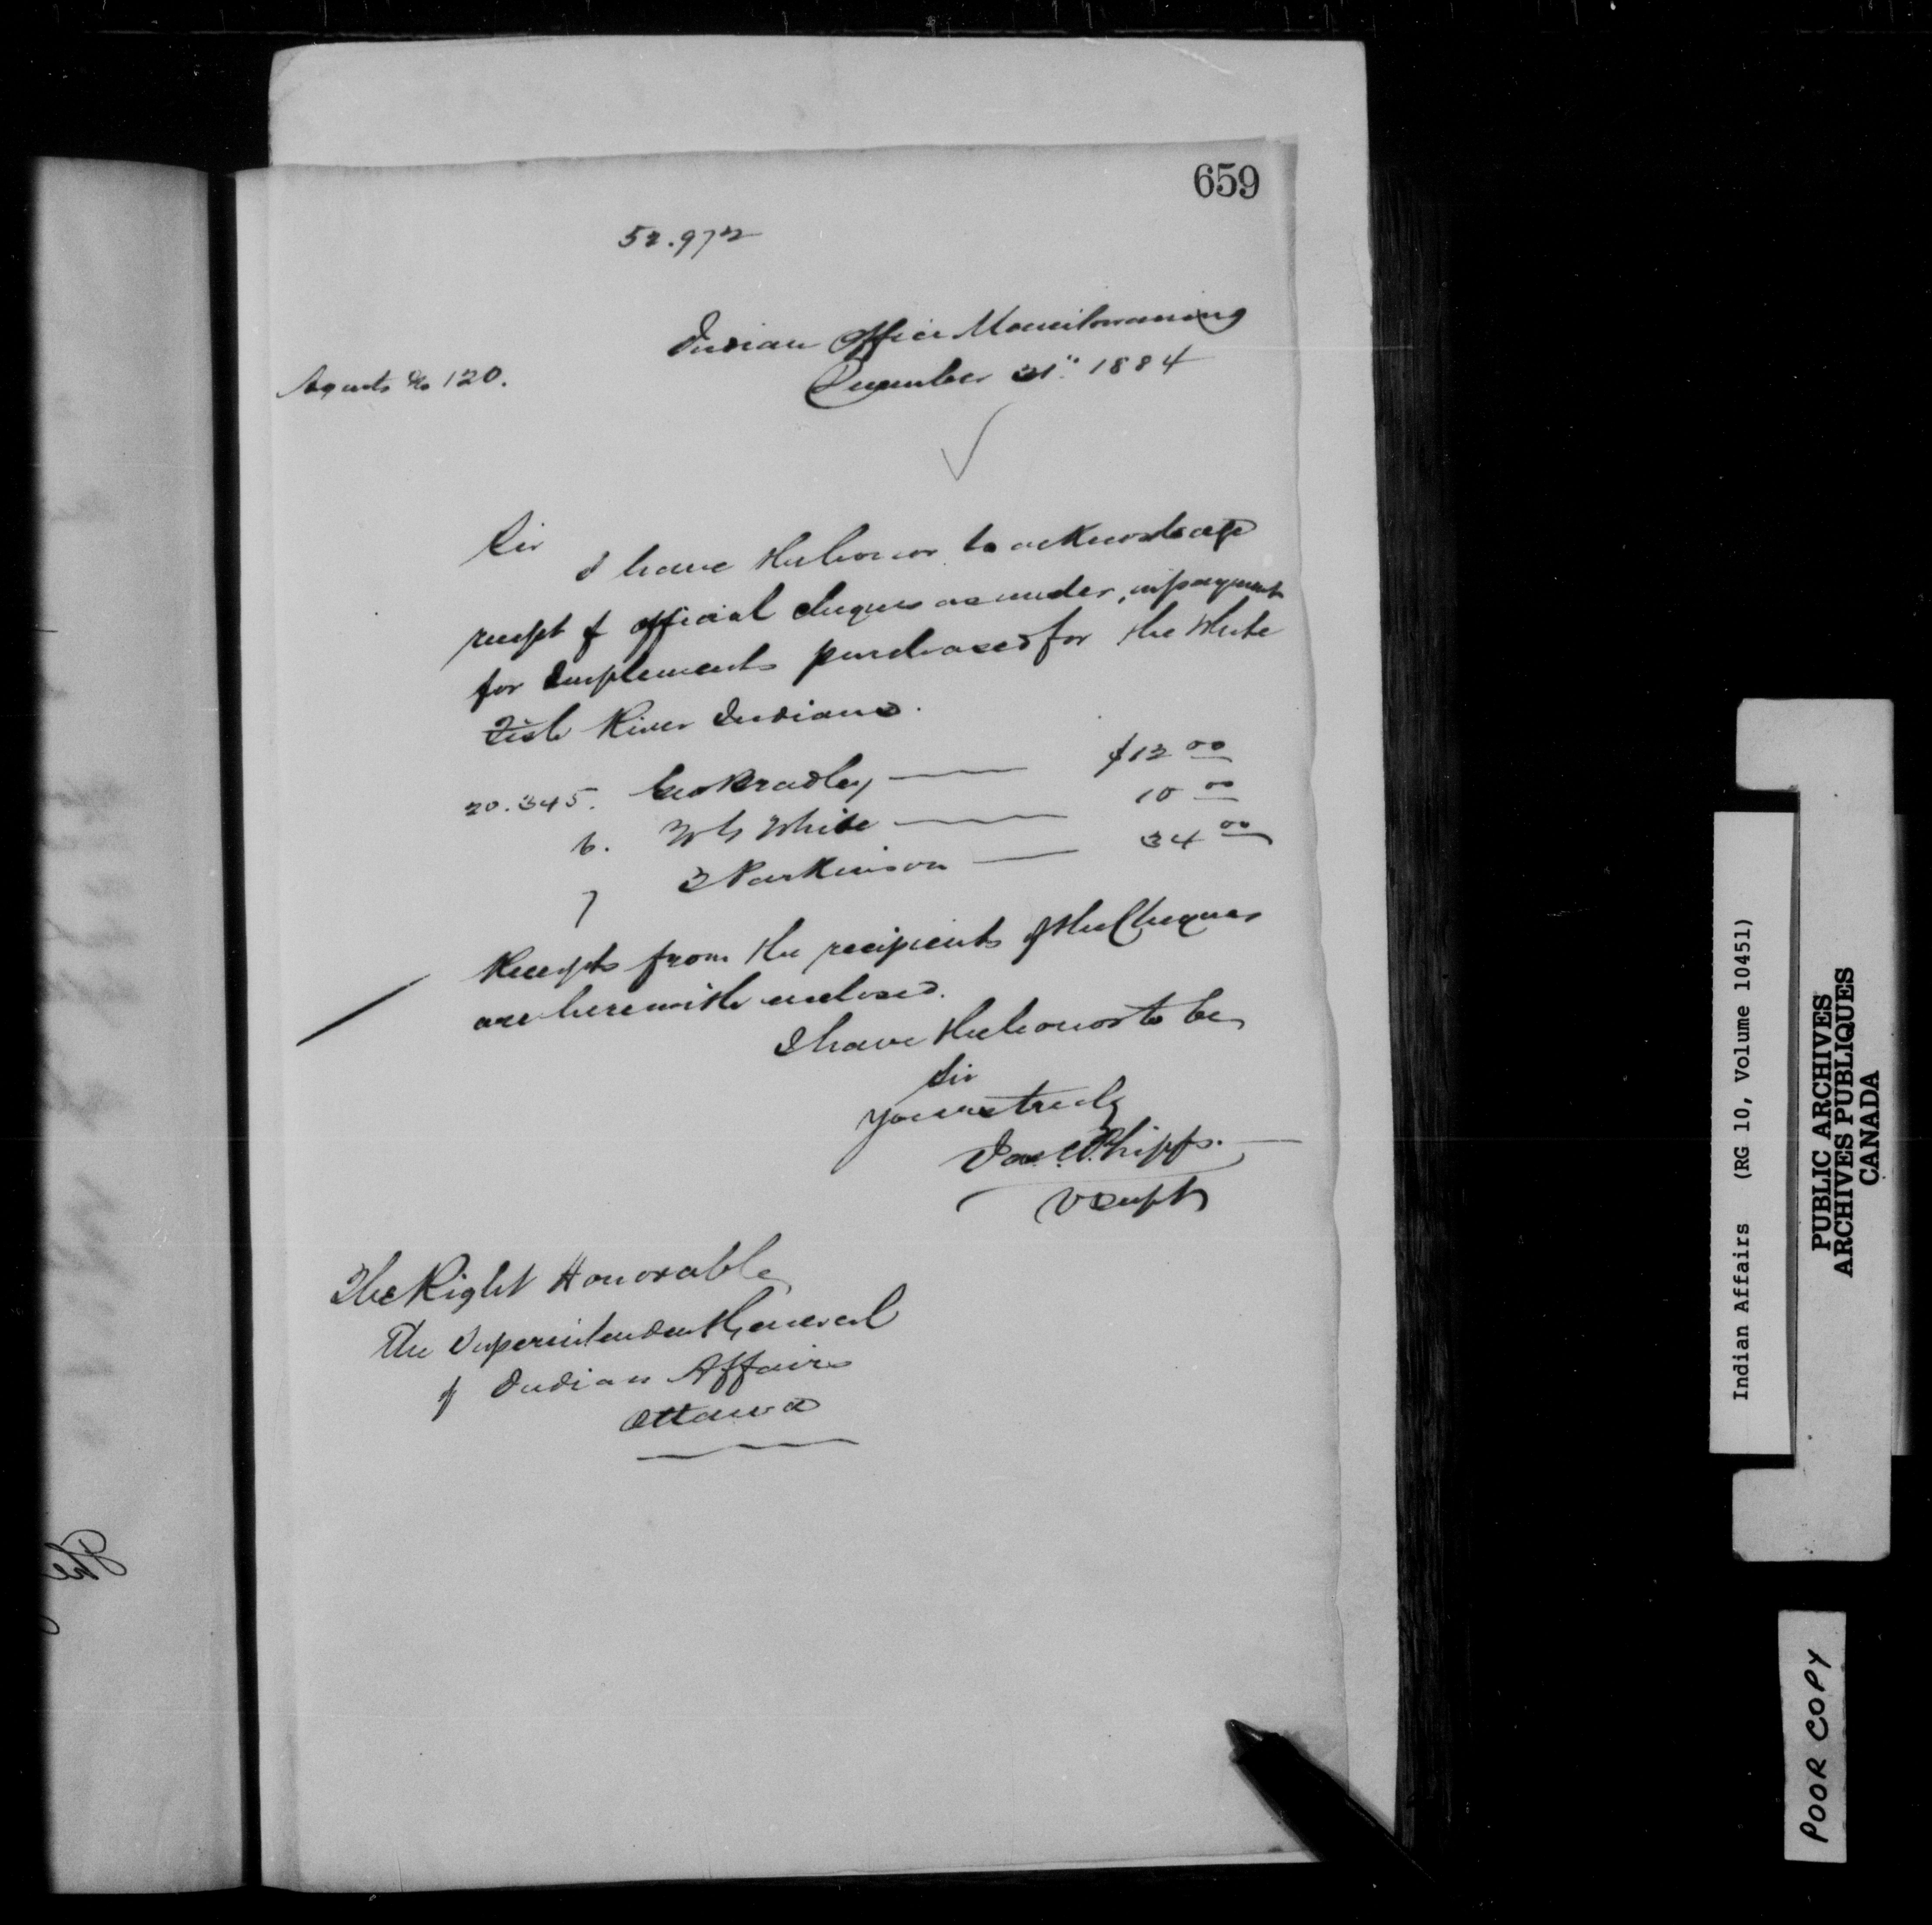 659
52.972
Indian Office Manitowaning
December 31" 1884
Agents No 120.
Sir
I have the honor to acknowledge
receipt of official cheques as under, in payment
for Implements purchased for the White
Fish River Indians.
20.345. Geo Bradley $12 00
6. W G White 10 00
7 T Parkinson 34 00
Receipts from the recipients of the Cheques
are herewith enclosed.
I have the honor to be
Sir
Yours truly
Jas. C. Phipps.
V Supt
The Right Honorable
The Superintendent General
of Indian Affairs
Ottawa
The
Indian Affairs (RG 10, Volume 10451)
PUBLIC ARCHIVES
ARCHIVES PUBLIQUES
CANADA
POOR COPY